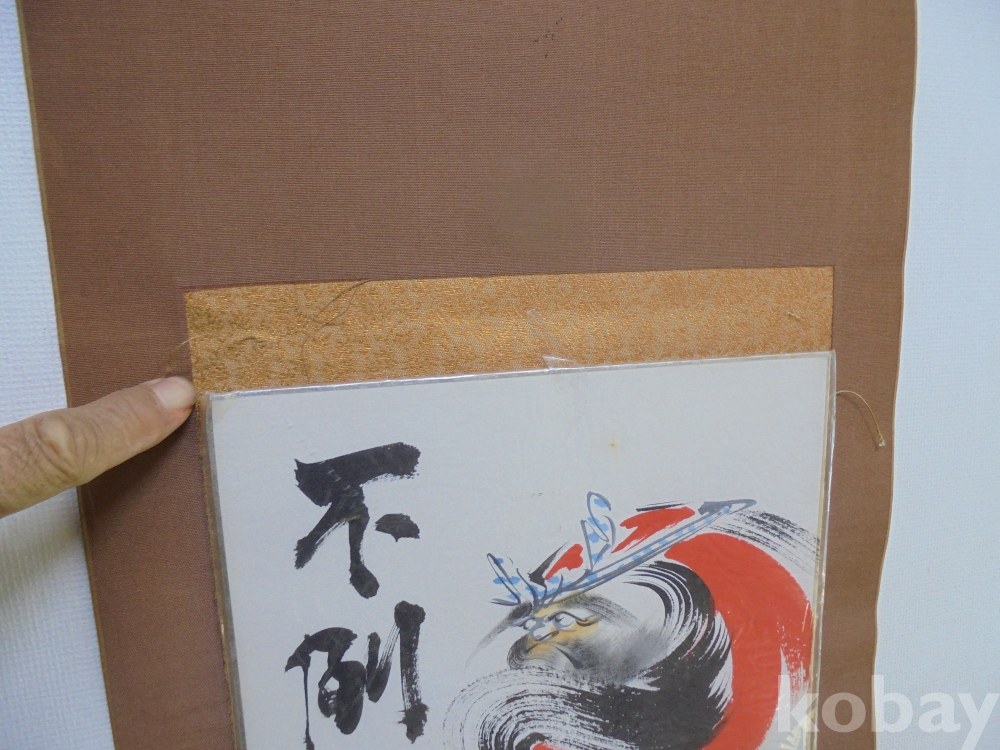 不倒
kobay